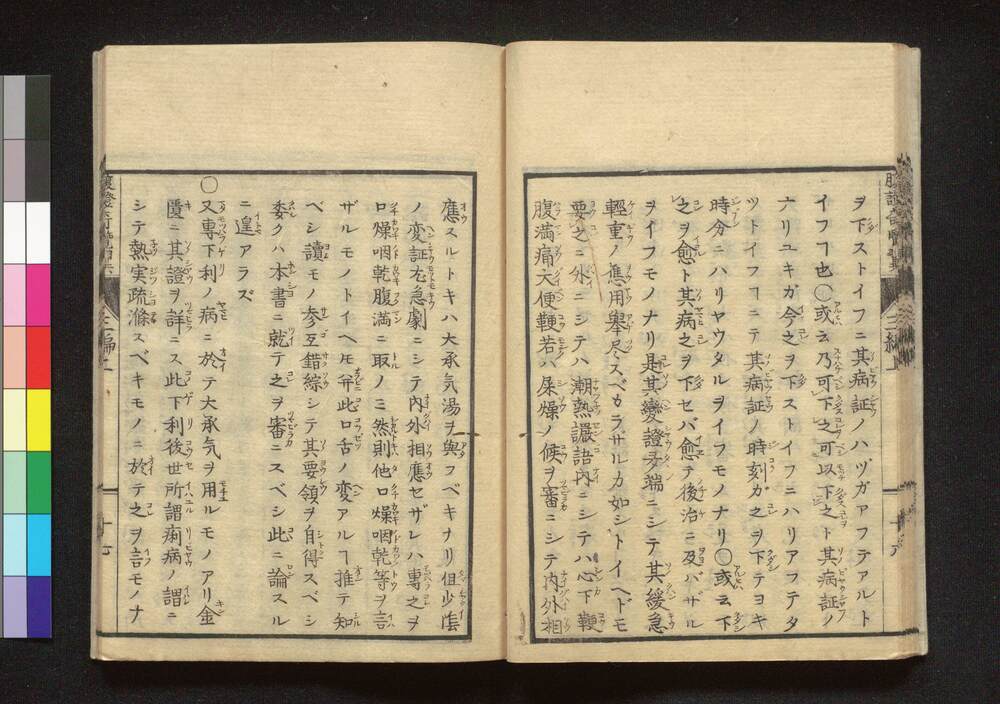 ヲ下ストイフニ其病証ノハヅガアフテアルト
イフヿ也〇或云乃可下之可以下之ト其病証ノ
ナリユキガ今之ヲ下ストイフニハリアフテタ
ツトイフヿニテ其病証ノ時刻ガ之ヲ下テヨキ
時分ニハリヤウタルヲイフモノナリ〇或云下
之ヲ愈ト其病之ヲ下セバ愈テ後治ニ及バザル
ヲイフモノナリ是其變證多端ニシテ其緩急
輕重ノ應用舉尽スベカラサルカ如シトイヘドモ
要之ニ外ニシテハ潮熱讝語内ニシテハ心下鞕
腹満痛大便鞕若ハ屎燥ノ候ヲ審ニシテ内外相
應スルトキハ大承気湯ヲ與フベキナリ但少陰
ノ変証尤急劇ニシテ内外相應セザレハ專之ヲ
口燥咽乾腹満ニ取ノミ然則他口燥咽乾等ヲ言
ザルモノトイヘ𪜈并此口舌ノ変アルヿ推テ知
ベシ讀モノ参互錯綜シテ其要領ヲ自得スベシ
委クハ本書ニ就テ之ヲ審ニスベシ此ニ論スル
ニ遑アラズ
〇又専下利ノ病ニ於テ大承気ヲ用ルモノアリ金
匱ニ其證ヲ詳ニス此下利後世所謂痢病ノ謂ニ
シテ熱実疏滌スベキモノニ於テ之ヲ言モノナ